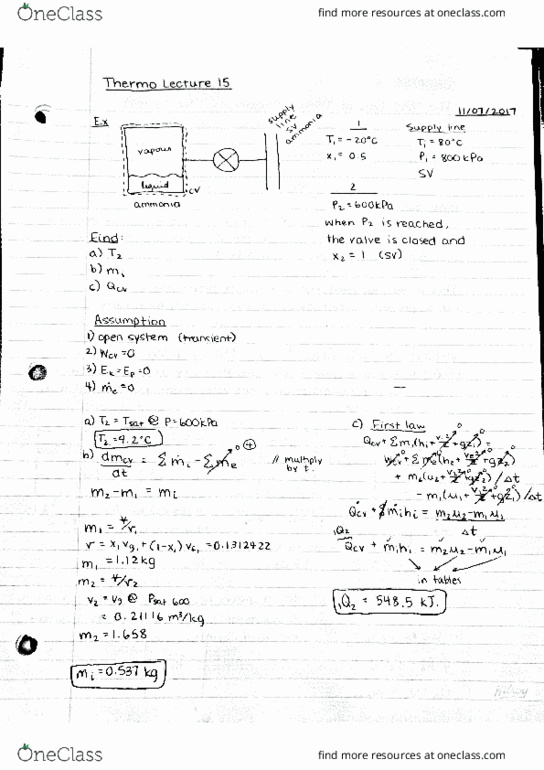 OneClass find more resources at oneclass.com
Thermo Lecture 15
11/07/2017
Ex
vapour
liquid
CV
ammonia
supply line SV ammonia
1
T₁ = -20°C
x₁ = 0.5
Supply line
T₁ = 80°C
P₁ = 800 kPa
SV
2
P₂ = 600kPa
when P₂ is reached,
the valve is closed and
x₂ = 1 (SV)
Find:
a) T₂
b) mᵢ
c) Qcv
Assumption
1) open system (transient)
2) Wcv = 0
3) Ek = Ep = 0
4) ṁe = 0
a) T₂ = Tsat @ P = 600kPa
T₂ = 9.2°C
b) dmcv/dt = Σ ṁᵢ - Σ ṁe⁰
// multiply by t.
m₂ - m₁ = mᵢ
m₁ = V/v₁
v = x₁vg₁ + (1-x₁) vf₁ = 0.1312422
m₁ = 1.12 kg
m₂ = V/v₂
v₂ = vg @ Psat 600
= 0.21116 m³/kg
m₂ = 1.658
mᵢ = 0.537 kg
c) First law
Qcv + Σ mᵢ(hᵢ + V²/2⁰ + gz₁⁰) =
Wcv⁰ + Σ me⁰(h₂ + V²/2⁰ + gz₂⁰)
+ m₂(u₂ + V²/2⁰ + gz₂⁰)/Δt
- m₁(u₁ + V²/2⁰ + gz₁⁰)/Δt
Q̇cv + Σṁᵢhᵢ = m₂u₂ - m₁u₁
Δt
₁Q₂
Qcv + mᵢhᵢ = m₂u₂ - m₁u₁
in tables
₁Q₂ = 548.5 kJ.
Hilroy
OneClass find more resources at oneclass.com